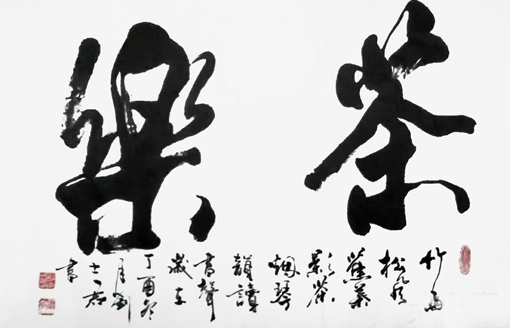 茶樂
竹雨
松風
蕉葉
影茶
烟琴
韻讀
書聲
歲在
丁酉冬
月劉
書